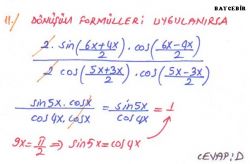 BAYCEBİR
11/ DÖNÜŞÜM FORMÜLLERİ UYGULANIRSA
2. sin(6x+4x/2) . cos(6x-4x/2)
2 cos(5x+3x/2) . cos(5x-3x/2)
sin5x. cosx / cos4x. cosx = sin5x / cos4x = 1
9x = π/2 ⇒ sin5x = cos4x
CEVAP: D